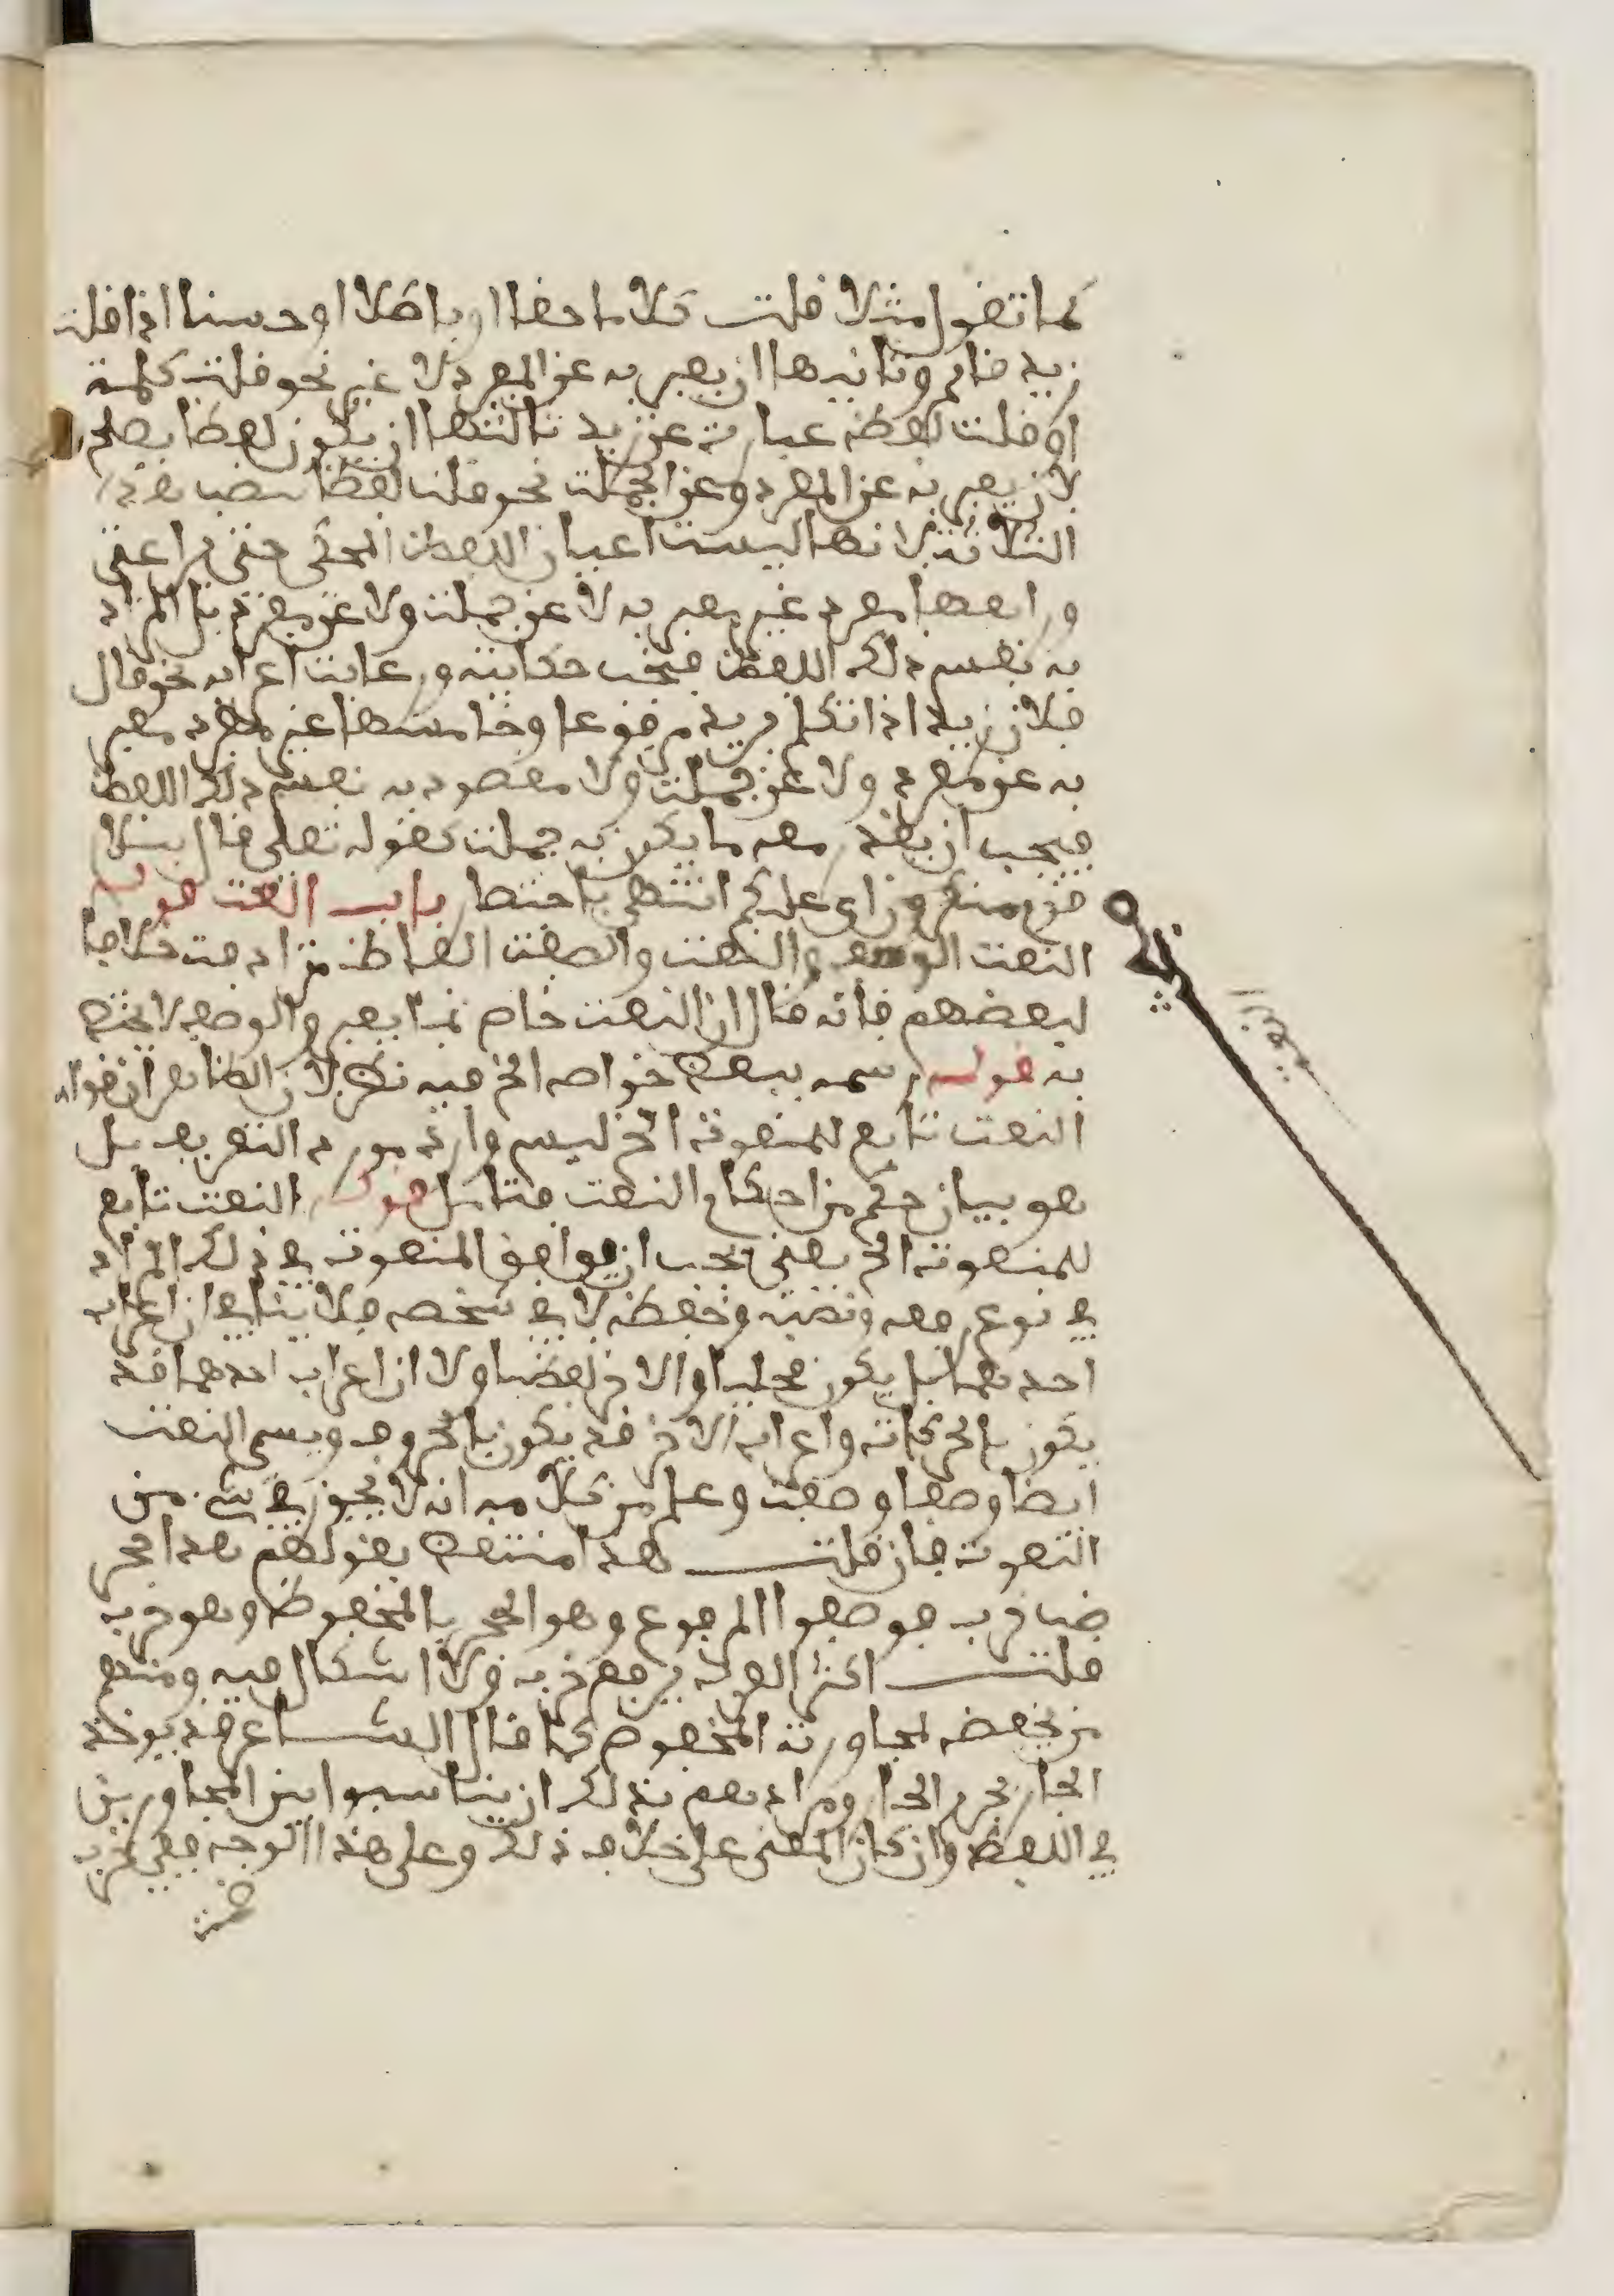 كما تقول مثلا قلت كلاما حقا او باطلا او حسنا اذا قلت
زيد قائم وثانيها ان يعبر به عن المفرد لا غير نحو قلت كلمة
او قلت لفظة عبارة عن زيد ثالثها ان يكون لفظا يصلح
لان يعبر به عن المفرد وعن الجملة نحو قلت لفظا بنصب هذه
الثلاثة لانها ليست اعيان اللفظ المحكي حتى يراعى
ورابعها مفرد غير معبر به لا عن جملة ولا عن مفرد بل المراد
به نفس ذلك اللفظ فيجب حكايته ورعاية اعرابه نحو قال
فلان زيد اذا تكلم بزيد مرفوعا وخامسها غير مفرد معبر
به عن مفرد ولا عن جملة ولا مقصود به نفس ذلك اللفظ
فيجب ان يقدر معه ما يكون به جملة كقوله تعلى قال سلام
قوم منكرون اي عليكم انتهى باختصار باب النعت قوله
النعت الوصف والنعت والصفة الفاظ مترادفة خلافا
لبعضهم فانه قال ان النعت خاص بما يعبر والوصف لا يختص
به قوله رسمه ببعض خواصه الخ فيه نظر لان الظاهر ان قوله
النعت تابع للمنعوت الخ ليس وارد مورد التعريف بل
هو بيان حكم من احكام النعت فتامل قوله النعت تابع
للمنعوت الخ يعني يجب ان يوافق المنعوت في ذلك المراد
في نوع رفعه ونصبه وخفضه لا في شخصه فلا ينافي ان اعراب
احدهما يكون محليا والاخر لفظيا ولا ان اعراب احدهما قد
يكون بالحركات واعراب الاخر قد يكون بالحروف ويسمى النعت
ايضا وصفا وصفة وعلم من كلامه انه لا يجوز في شيء من
النعوت فان قلت هذا منتقض بقولهم هذا جحر
ضب خرب فوصفوا المرفوع وهو الجحر بالمخفوض وهو خرب
قلت اكثر العرب ترفع خرب ولا اشكال فيه ومنهم
من يخفضه لمجاورته المخفوض كما قال الشاعر قد يوخذ
الجار بجرم الجار ومرادهم بذلك ان يناسبوا بين المتجاورين
في اللفظ وان كان المعنى على خلاف ذلك وعلى هذا الوجه ففي خرب